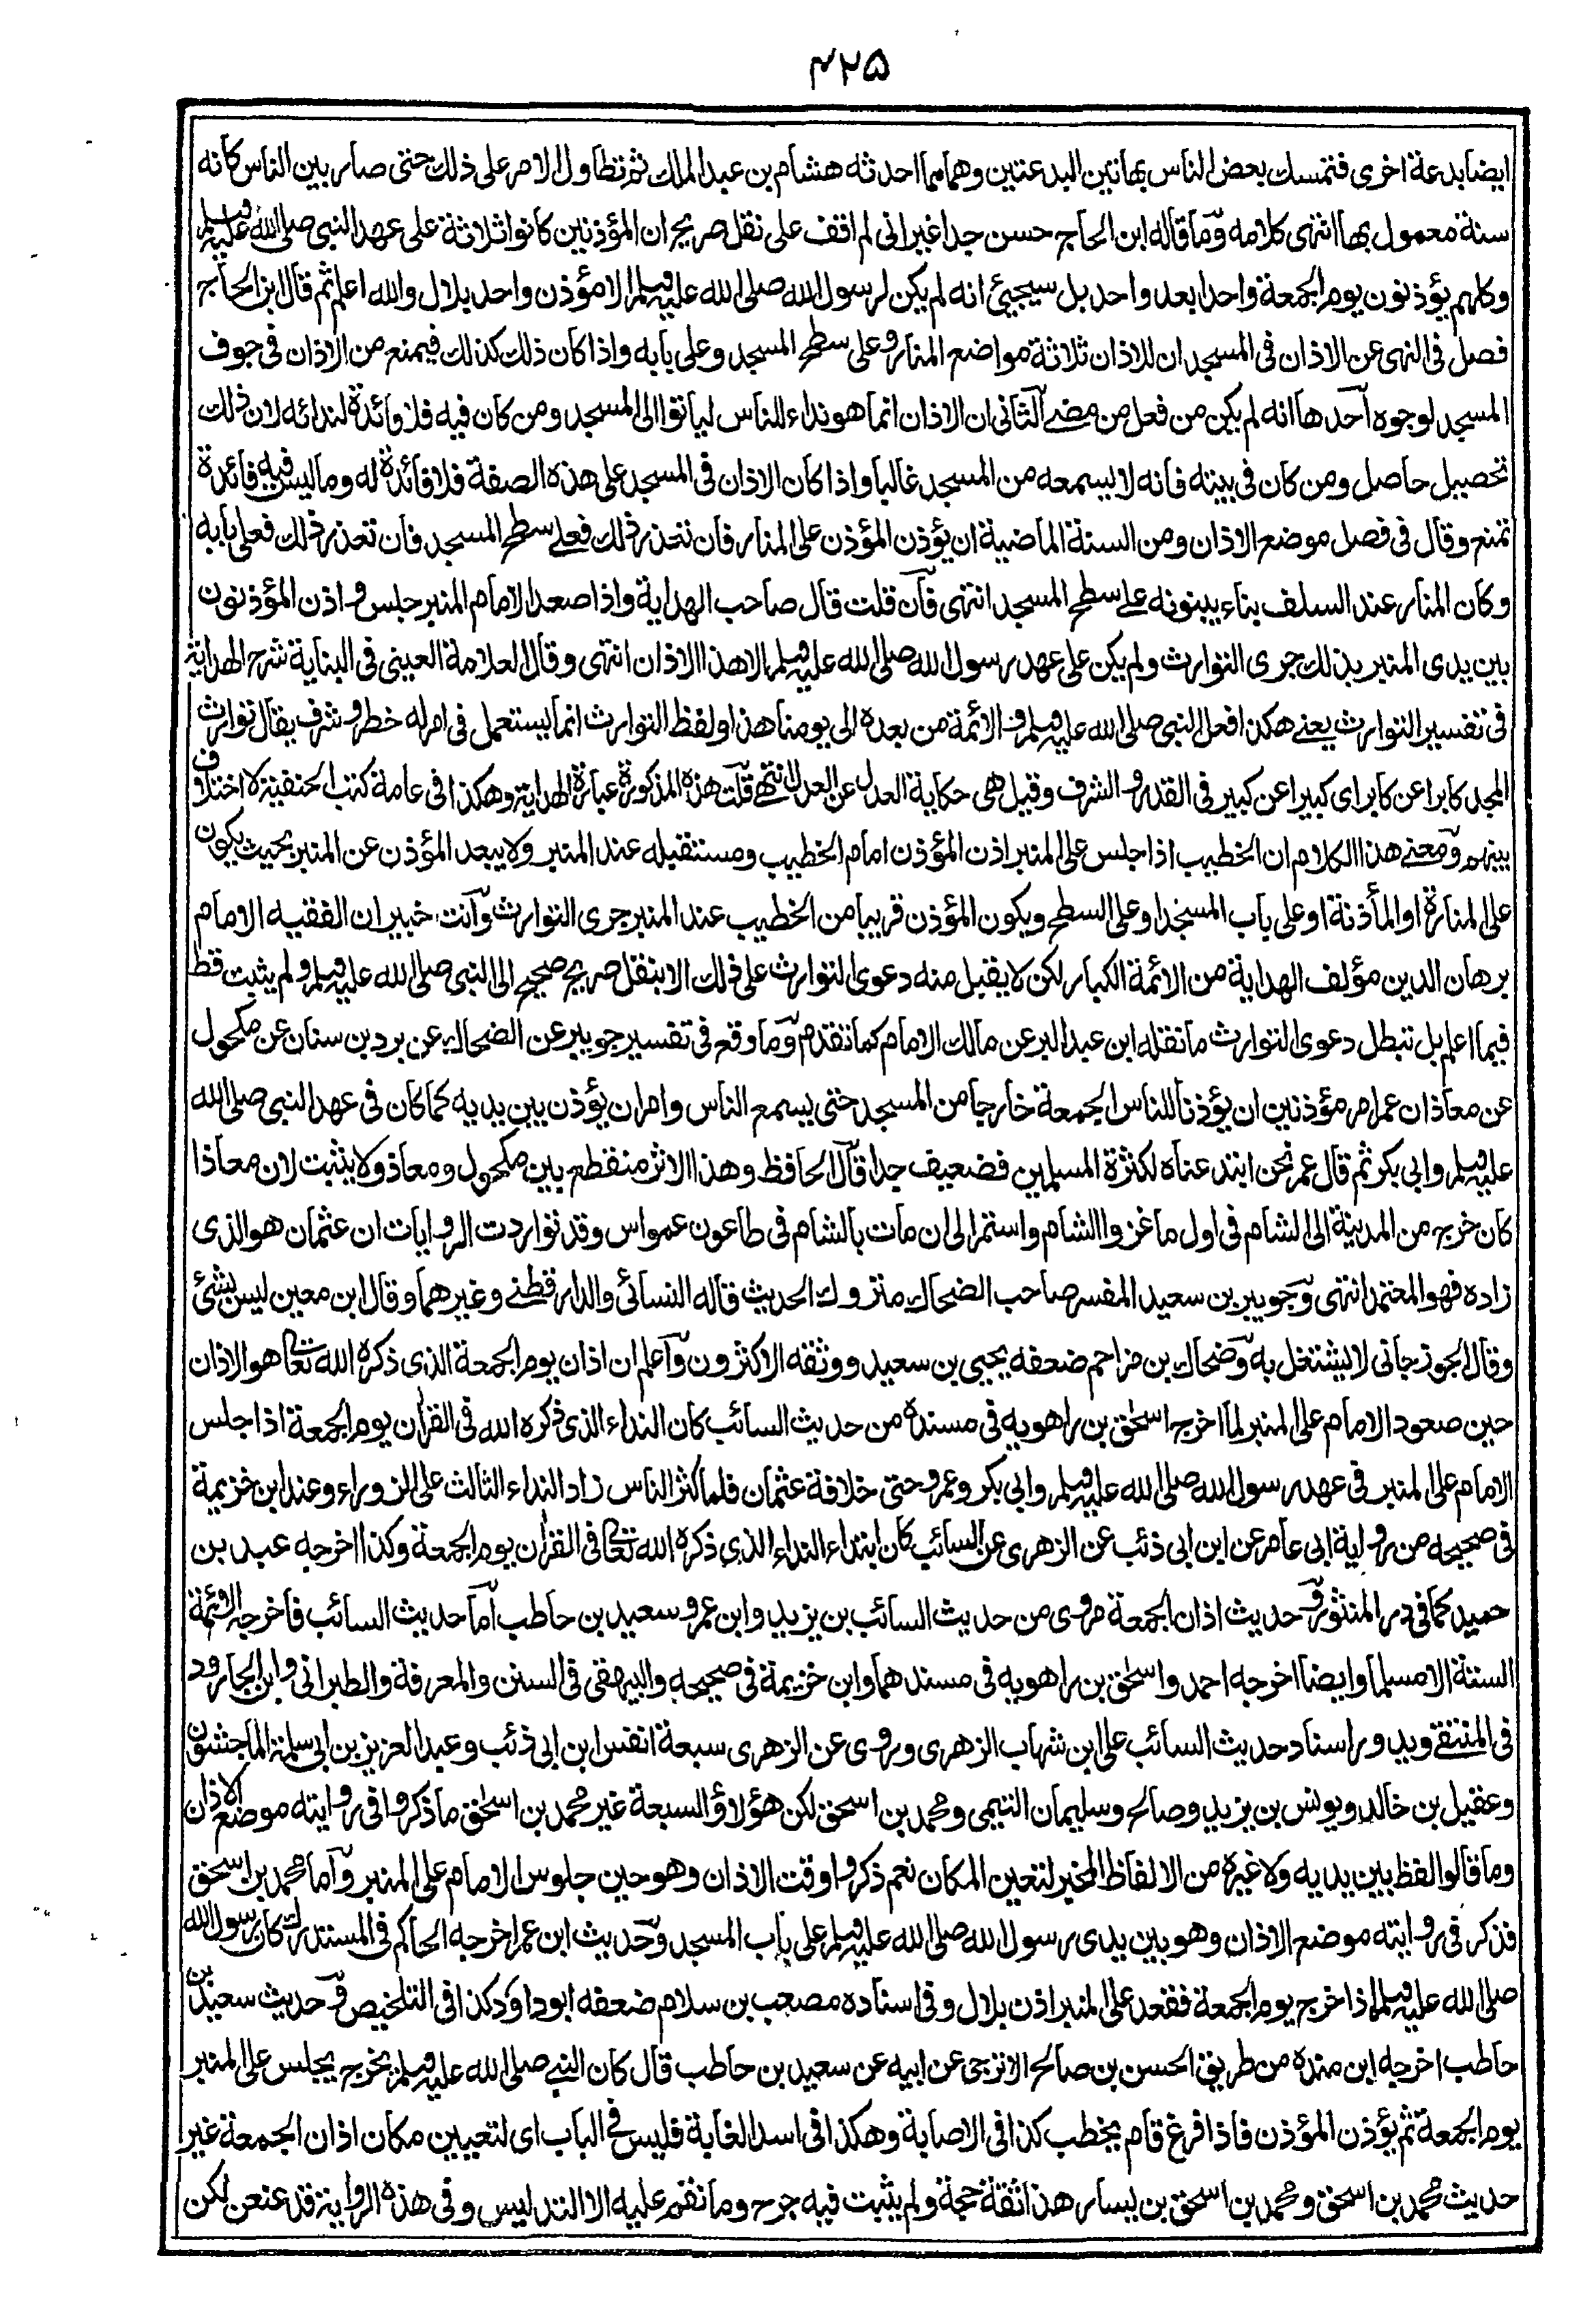 ۴۲۵
ايضا بدعة اخرى فتمسك بعض الناس بهاتين البدعتين وهما مما احدثه هشام بن عبد الملك ثم تطاول الامر على ذلك حتى صار بين الناس كانه
سنة معمول بها انتهى كلامه وما قاله ابن الحاج حسن جدا غير انى لم اقف على نقل صريح ان المؤذنين كانوا ثلاثة على عهد النبى صلى الله عليه وسلم
وكلهم يؤذنون يوم الجمعة واحدا بعد واحد بل سيجيئ انه لم يكن لرسول الله صلى الله عليه وسلم الا مؤذن واحد بلال والله اعلم ثم قال ابن الحاج
فصل فى النهى عن الاذان فى المسجد ان للاذان ثلاثة مواضع المنار وعلى سطح المسجد وعلى بابه واذا كان ذلك كذلك فيمنع من الاذان فى جوف
المسجد لوجوه احدها انه لم يكن من فعل من مضى الثانى ان الاذان انما هو نداء للناس لياتوا الى المسجد ومن كان فيه فلا فائدة لندائه لان ذلك
تحصيل حاصل ومن كان فى بيته فانه لا يسمعه من المسجد غالبا واذا كان الاذان فى المسجد على هذه الصفة فلا فائدة له وما ليس فيه فائدة
تمنع وقال فى فصل موضع الاذان ومن السنة الماضية ان يؤذن المؤذن على المنار فان تعذر ذلك فعلى سطح المسجد فان تعذر ذلك فعلى بابه
وكان المنار عند السلف بناء يبنونه على سطح المسجد انتهى فان قلت قال صاحب الهداية واذا صعد الامام المنبر جلس واذن المؤذنون
بين يدى المنبر بذلك جرى التوارث ولم يكن على عهد رسول الله صلى الله عليه وسلم الا هذا الاذان انتهى وقال العلامة العينى فى البناية شرح الهداية
فى تفسير التوارث يعنى هكذا فعل النبى صلى الله عليه وسلم والائمة من بعده الى يومنا هذا ولفظ التوارث انما يستعمل فى امر له خطر وشرف يقال توارث
المجد كابرا عن كابر اى كبيرا عن كبير فى القدر والشرف وقيل هى حكاية العدل عن العدل انتهى قلت هذه المذكورة عبارة الهداية وهكذا فى عامة كتب الحنفية لا اختلاف
بينهم ومعنى هذا الكلام ان الخطيب اذا جلس على المنبر اذن المؤذن امام الخطيب ومستقبله عند المنبر ولا يبعد المؤذن عن المنبر بحيث يكون
على المنارة او المأذنة او على باب المسجد او على السطح ويكون المؤذن قريبا من الخطيب عند المنبر جرى التوارث وانت خبير ان الفقيه الامام
برهان الدين مؤلف الهداية من الائمة الكبار لكن لا يقبل منه دعوى التوارث على ذلك الا بنقل صريح صحيح الى النبى صلى الله عليه وسلم ولم يثبت قط
فيما اعلم بل تبطل دعوى التوارث ما نقله ابن عبد البر عن مالك الامام كما تقدم وما وقع فى تفسير جويبر عن الضحاك عن برد بن سنان عن مكحول
عن معاذ ان عمر امر مؤذنين ان يؤذنا للناس الجمعة خارجا من المسجد حتى يسمع الناس وامر ان يؤذن بين يديه كما كان فى عهد النبى صلى الله
عليه وسلم وابى بكر ثم قال عمر نحن ابتدعناه لكثرة المسلمين فضعيف جدا قال الحافظ وهذا الاثر منقطع بين مكحول ومعاذ ولا يثبت لان معاذا
كان خرج من المدينة الى الشام فى اول ما غزوا الشام واستمر الى ان مات بالشام فى طاعون عمواس وقد تواردت الروايات ان عثمان هو الذى
زاده فهو المعتمد انتهى وجويبر بن سعيد المفسر صاحب الضحاك متروك الحديث قاله النسائى والدارقطنى وغيرهما وقال ابن معين ليس بشئ
وقال الجوزجانى لا يشتغل به وضحاك بن مزاحم ضعفه يحيى بن سعيد ووثقه الاكثرون واعلم ان اذان يوم الجمعة الذى ذكره الله تعالى هو الاذان
حين صعود الامام على المنبر لما اخرج اسحٰق بن راهويه فى مسنده من حديث السائب كان النداء الذى ذكره الله فى القرآن يوم الجمعة اذا جلس
الامام على المنبر فى عهد رسول الله صلى الله عليه وسلم وابى بكر وعمر وحتى خلافة عثمان فلما كثر الناس زاد النداء الثالث على الزوراء وعند ابن خزيمة
فى صحيحه من رواية ابى عامر عن ابن ابى ذئب عن الزهرى عن السائب كان ابتداء النداء الذى ذكره الله تعالى فى القرآن يوم الجمعة وكذا اخرجه عبد بن
حميد كما فى در المنثور وحديث اذان الجمعة مروى من حديث السائب بن يزيد وابن عمر وسعيد بن حاطب اما حديث السائب فاخرجه الائمة
الستة الا مسلما وايضا اخرجه احمد واسحٰق بن راهويه فى مسندهما وابن خزيمة فى صحيحه والبيهقى فى السنن والمعرفة والطبرانى وابن الجارود
فى المنتقى ويدور اسناد حديث السائب على ابن شهاب الزهرى وروى عن الزهرى سبعة انفس ابن ابى ذئب وعبد العزيز بن ابى سلمة الماجشون
وعقيل بن خالد ويونس بن يزيد وصالح وسليمان التيمى ومحمد بن اسحٰق لكن هؤلاؤ السبعة غير محمد بن اسحٰق ما ذكروا فى روايته موضع الاذان
وما قالوا لفظ بين يديه ولا غيره من الالفاظ المخبر لتعين المكان نعم ذكروا وقت الاذان وهو حين جلوس الامام على المنبر واما محمد بن اسحٰق
فذكر فى روايته موضع الاذان وهو بين يدى رسول الله صلى الله عليه وسلم على باب المسجد وحديث ابن عمر اخرجه الحاكم فى المستدرك كان رسول الله
صلى الله عليه وسلم اذا خرج يوم الجمعة فقعد على المنبر اذن بلال وفى اسناده مصعب بن سلام ضعفه ابو داود كذا فى التلخيص وحديث سعيد بن
حاطب اخرجه ابن منده من طريق الحسن بن صالح الاترجى عن ابيه عن سعيد بن حاطب قال كان النبى صلى الله عليه وسلم يخرج يجلس على المنبر
يوم الجمعة ثم يؤذن المؤذن فاذا فرغ قام يخطب كذا فى الاصابة وهكذا فى اسد الغابة فليس فى الباب اى لتعيين مكان اذان الجمعة غير
حديث محمد بن اسحٰق ومحمد بن اسحٰق بن يسار هذا ثقة حجة ولم يثبت فيه جرح وما نقم عليه الا التدليس وفى هذه الرواية قد عنعن لكن